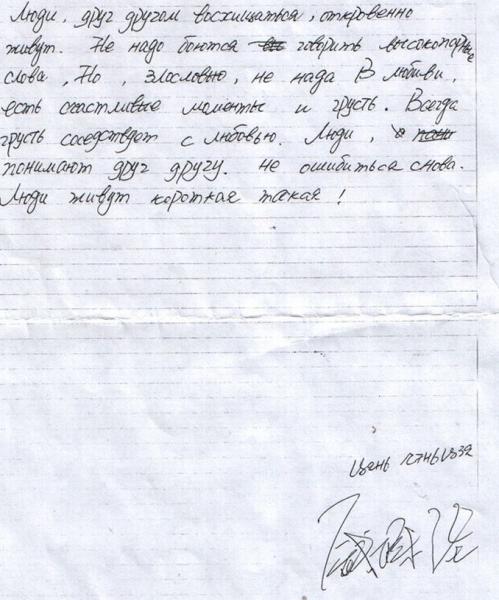 Люди, друг другом восхищаться, откровенно
живут. Не надо боются говорить высокопарные
слова, Но, злословию, не нада В любви,
есть счастливые моменты и грусть. Всегда
грусть соседствдет с любовью. Люди,
понимают друг другу. не ошибиться снова.
Люди живут короткая такая!
Цень